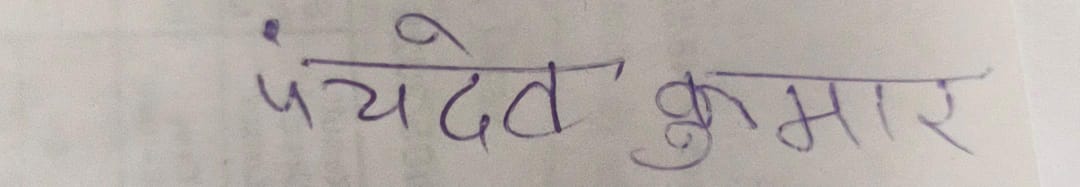 पंचदेव कुमार